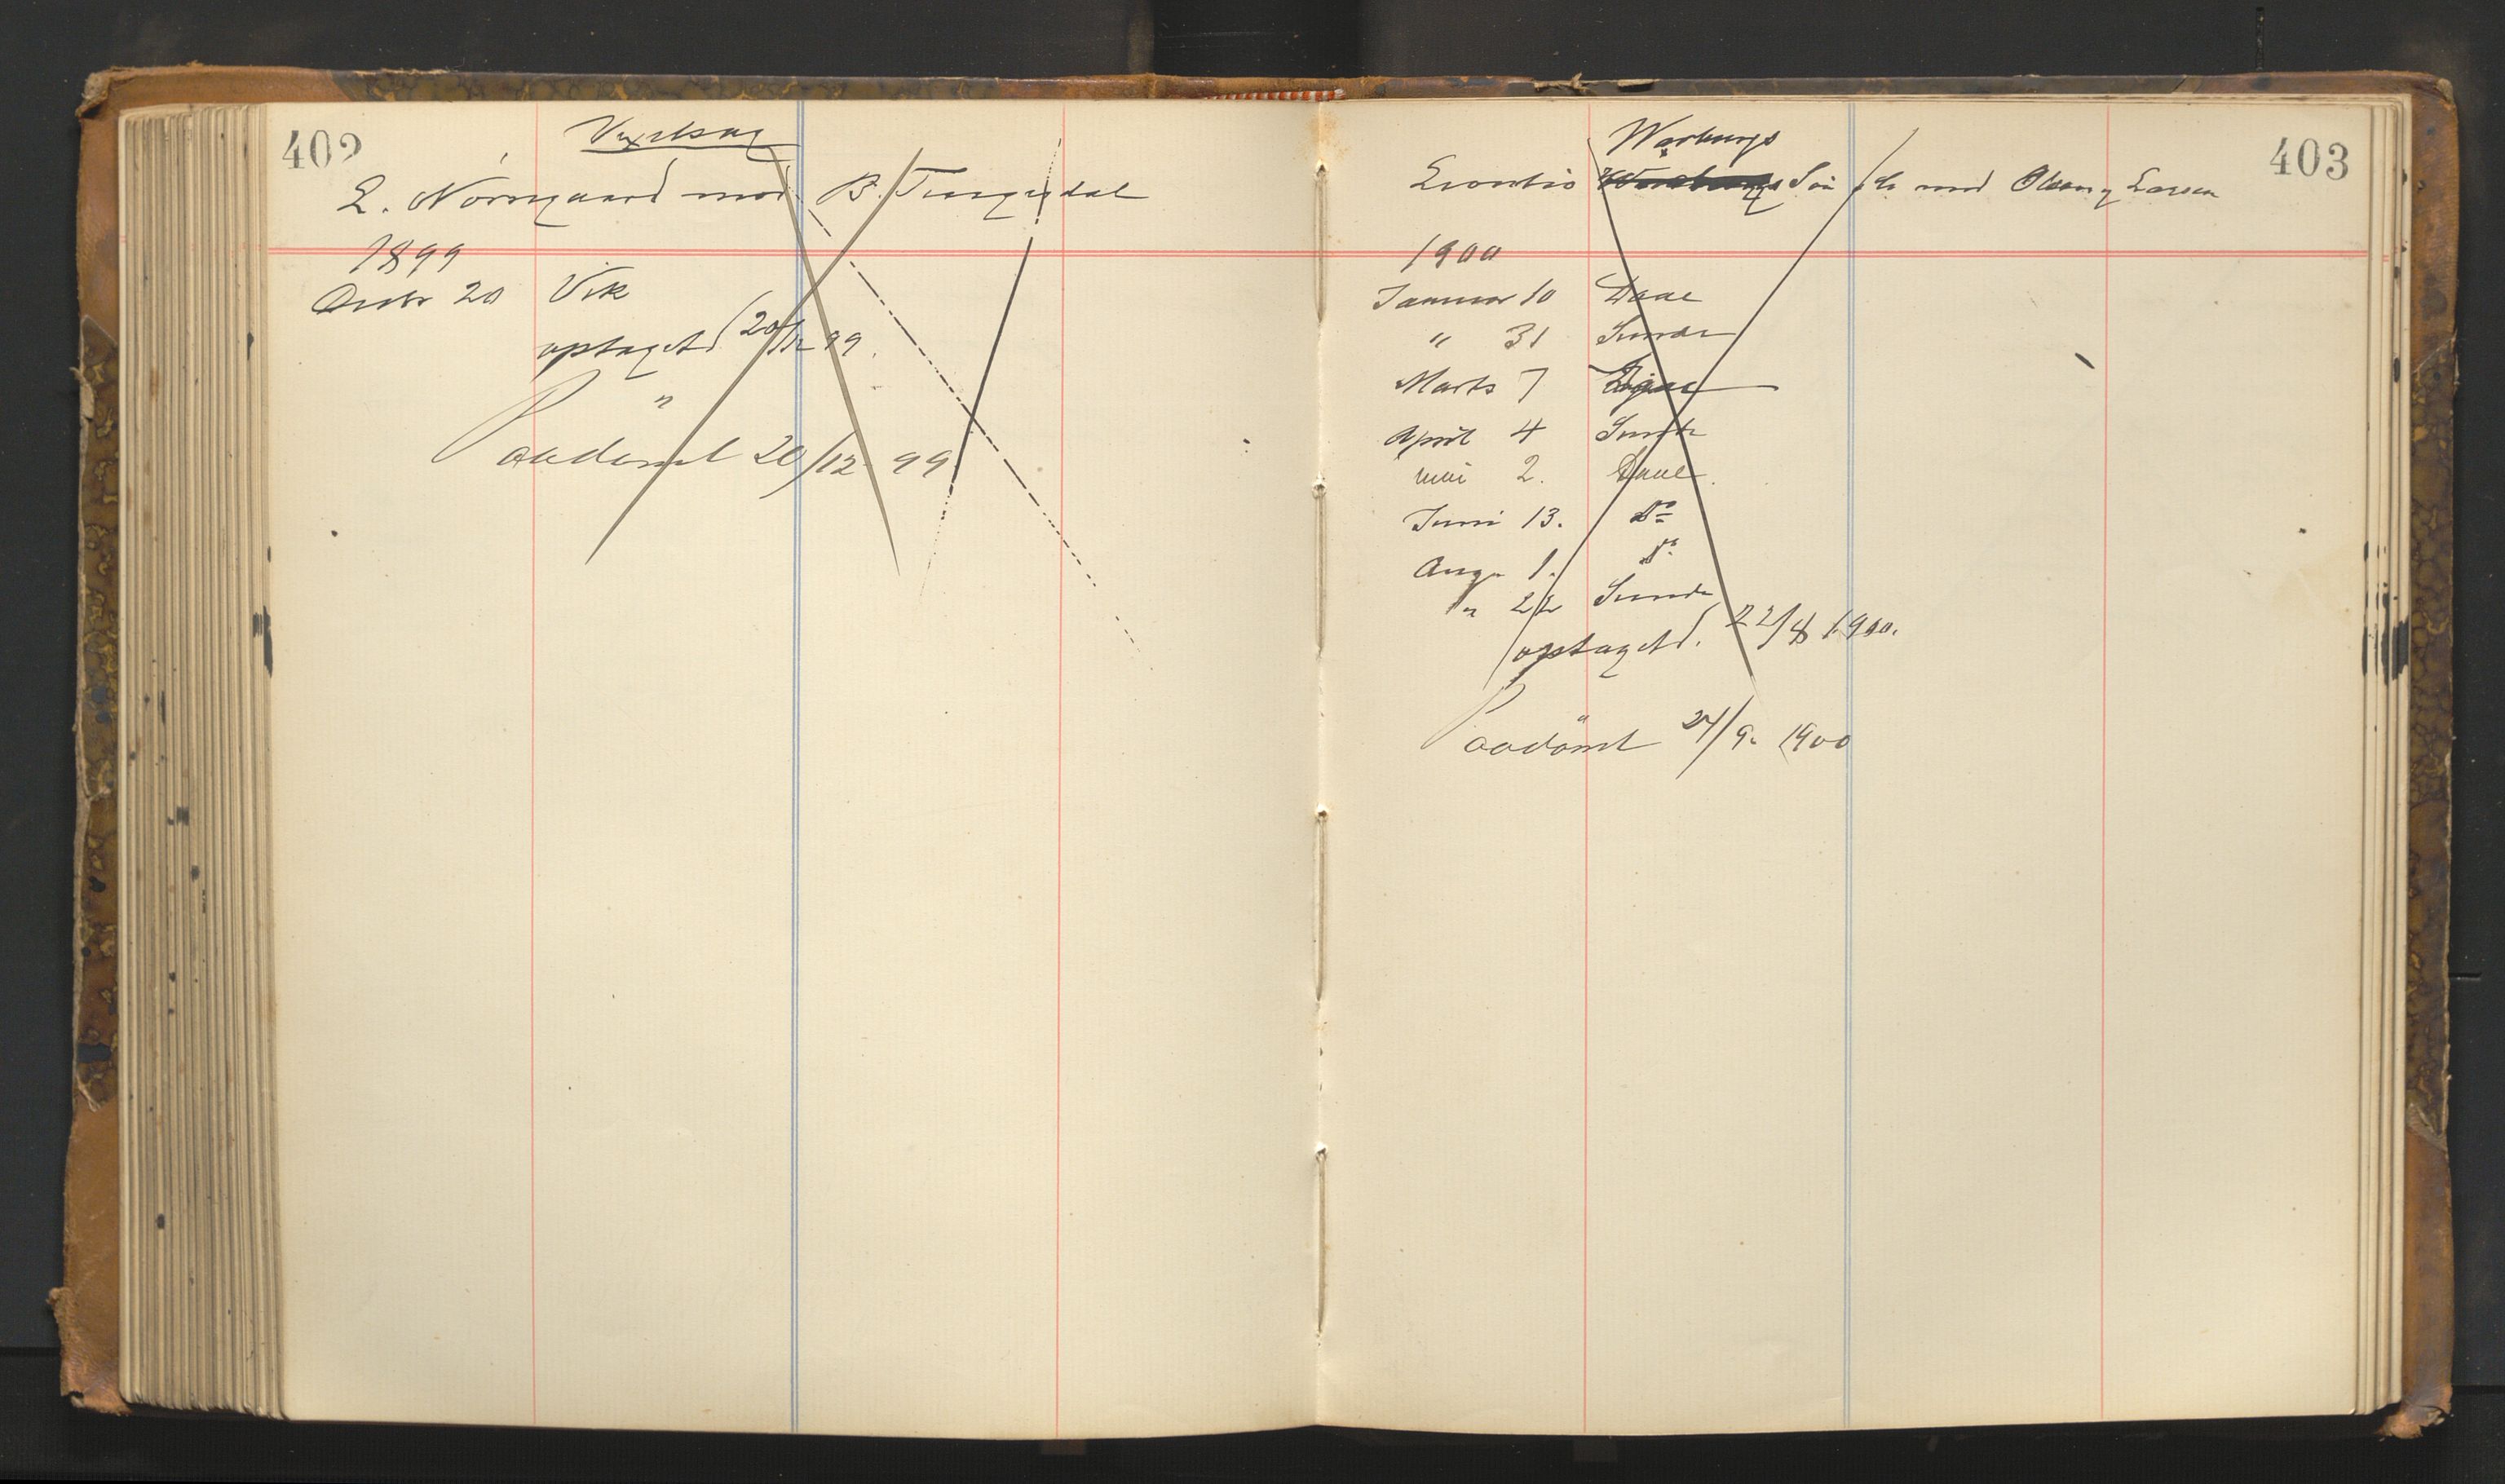 402
Vexelsag
L. Nørregaard mod B. Tengesdal
1899
Decbr 20 Vik
optaget d. 20/12 99.
Paadømt 20/12 99
403
Warburgs
Søn mod Olsen & Larsen
1900
Januar 10 Daae
" 31 Sunde
Marts 7
April 4 Sunde
mai 2. Daae.
Juni 13. Do
Aug. 1. Do
" 22 Sunde
optaget d. 22/8 1900.
Paadømt 24/9. 1900